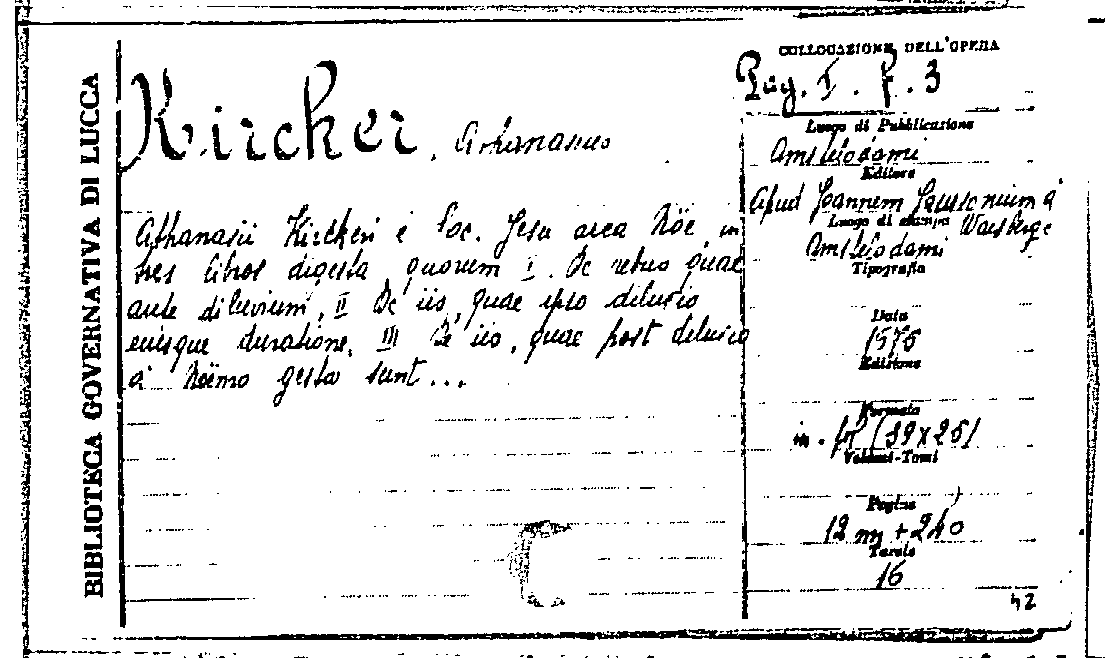 BIBLIOTECA GOVERNATIVA DI LUCCA
Kircher, Athanasius
Athanasii Kircheri e Soc. Jesu arca Nöe, in
tres libros digesta, quorum I. De rebus quae
ante diluvium, II De iis, quae ipso diluvio
eiusque duratione, III De iis, quae post diluvio
a Nöemo gesta sunt...
COLLOCAZIONE DELL'OPERA
I. f. 3
Luogo di Pubblicazione
Amstelodami
Editore
Apud Joannem Janssonium à
Waesberge
Luogo di stampa
Amstelodami
Tipografia
Data
1675
Edizione
Formato
in. f° (39x25)
Volumi-Tomi
Pagine
12 nn + 240
Tavole
16
42